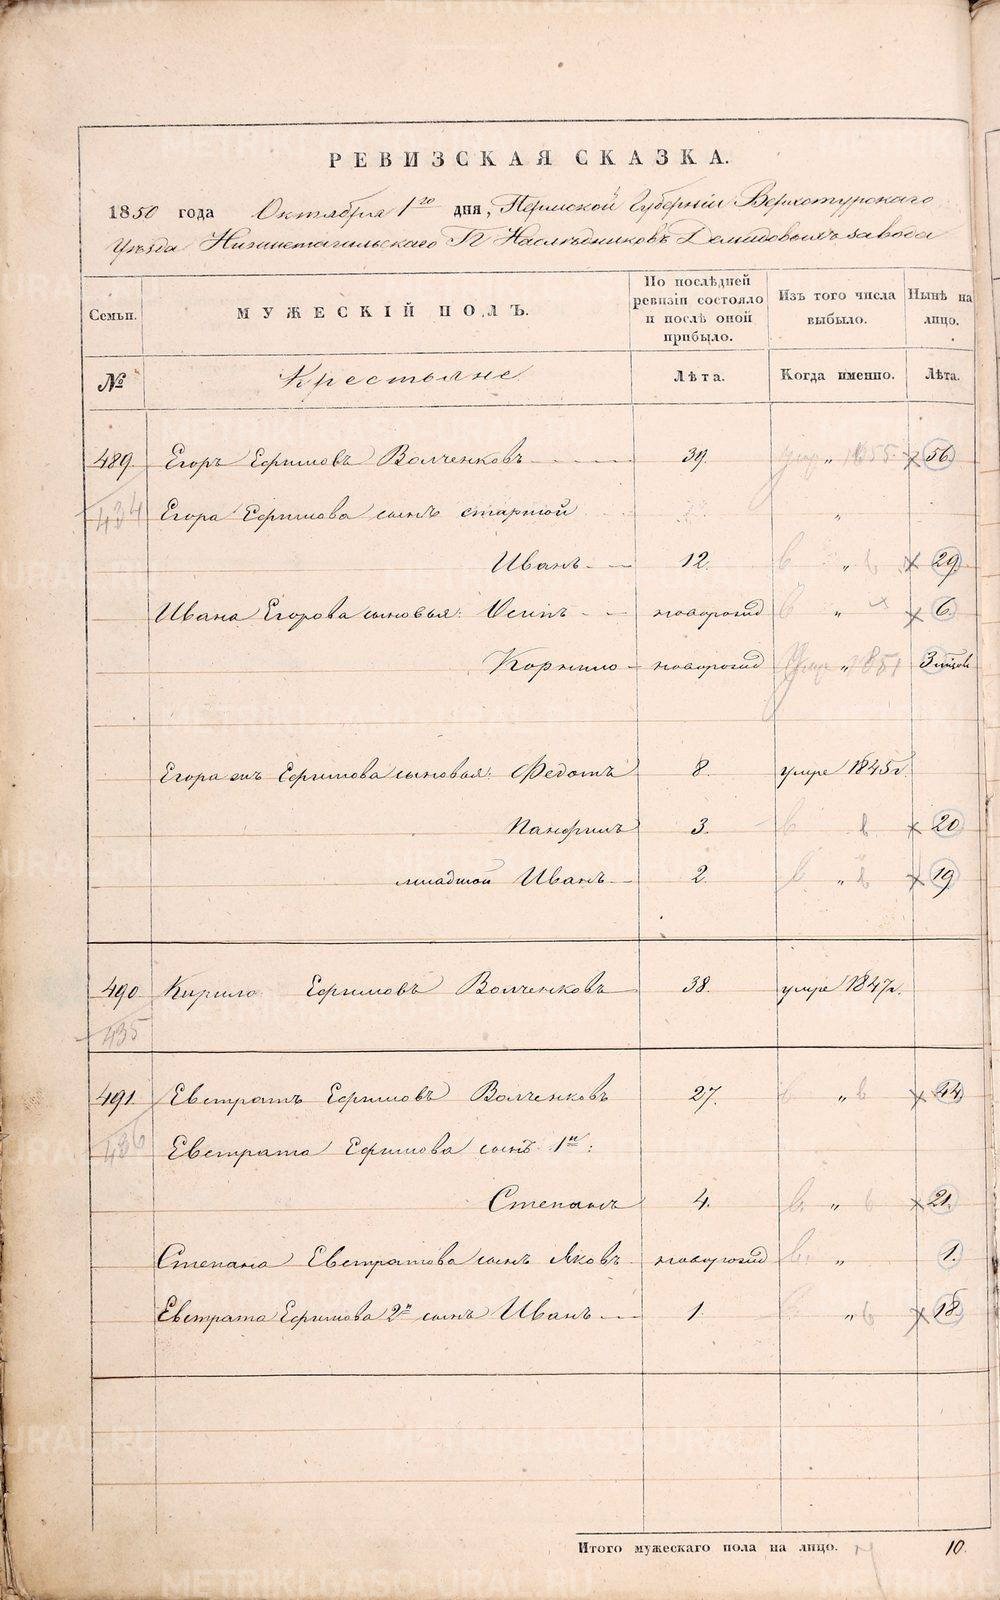 РЕВИЗСКАЯ СКАЗКА.
1850 года Октября 1го дня, Пермской Губернии Верхотурскаго
Уѣзда Нижнетагильскаго Гг Наслѣдниковъ Демидовыхъ завода
Семьи. МУЖЕСКІЙ ПОЛЪ. По послѣдней ревизіи состояло и послѣ оной прибыло. Изъ того числа выбыло. Нынѣ на лицо.
№ Крестьяне Лѣта. Когда именно. Лѣта.
489. Егоръ Ефимовъ Волченковъ 39. умр " 1855 56.
434 Егора Ефимова сынъ старшой "
Иванъ 12. " 29.
Ивана Егорова сыновья: Осипъ новорожд " 6.
Корнило новорожд умр " 1851 3 мѣсов
Егора жъ Ефимова сыновья: Федотъ 8. умре 1845г.
Панфилъ 3. 20
младшой Иванъ 2. " 19
490. Кирило Ефимовъ Волченковъ 38. умре 1847г.
435
491. Евстратъ Ефимовъ Волченковъ 27. " 44.
436 Евстрата Ефимова сынъ 1й:
Степанъ 4. " 21.
Степана Евстратова сынъ Яковъ новорожд " 1.
Евстрата Ефимова 2й сынъ Иванъ 1. " 18.
Итого мужескаго пола на лицо. 10.
METRIKI.GASO-URAL.RU